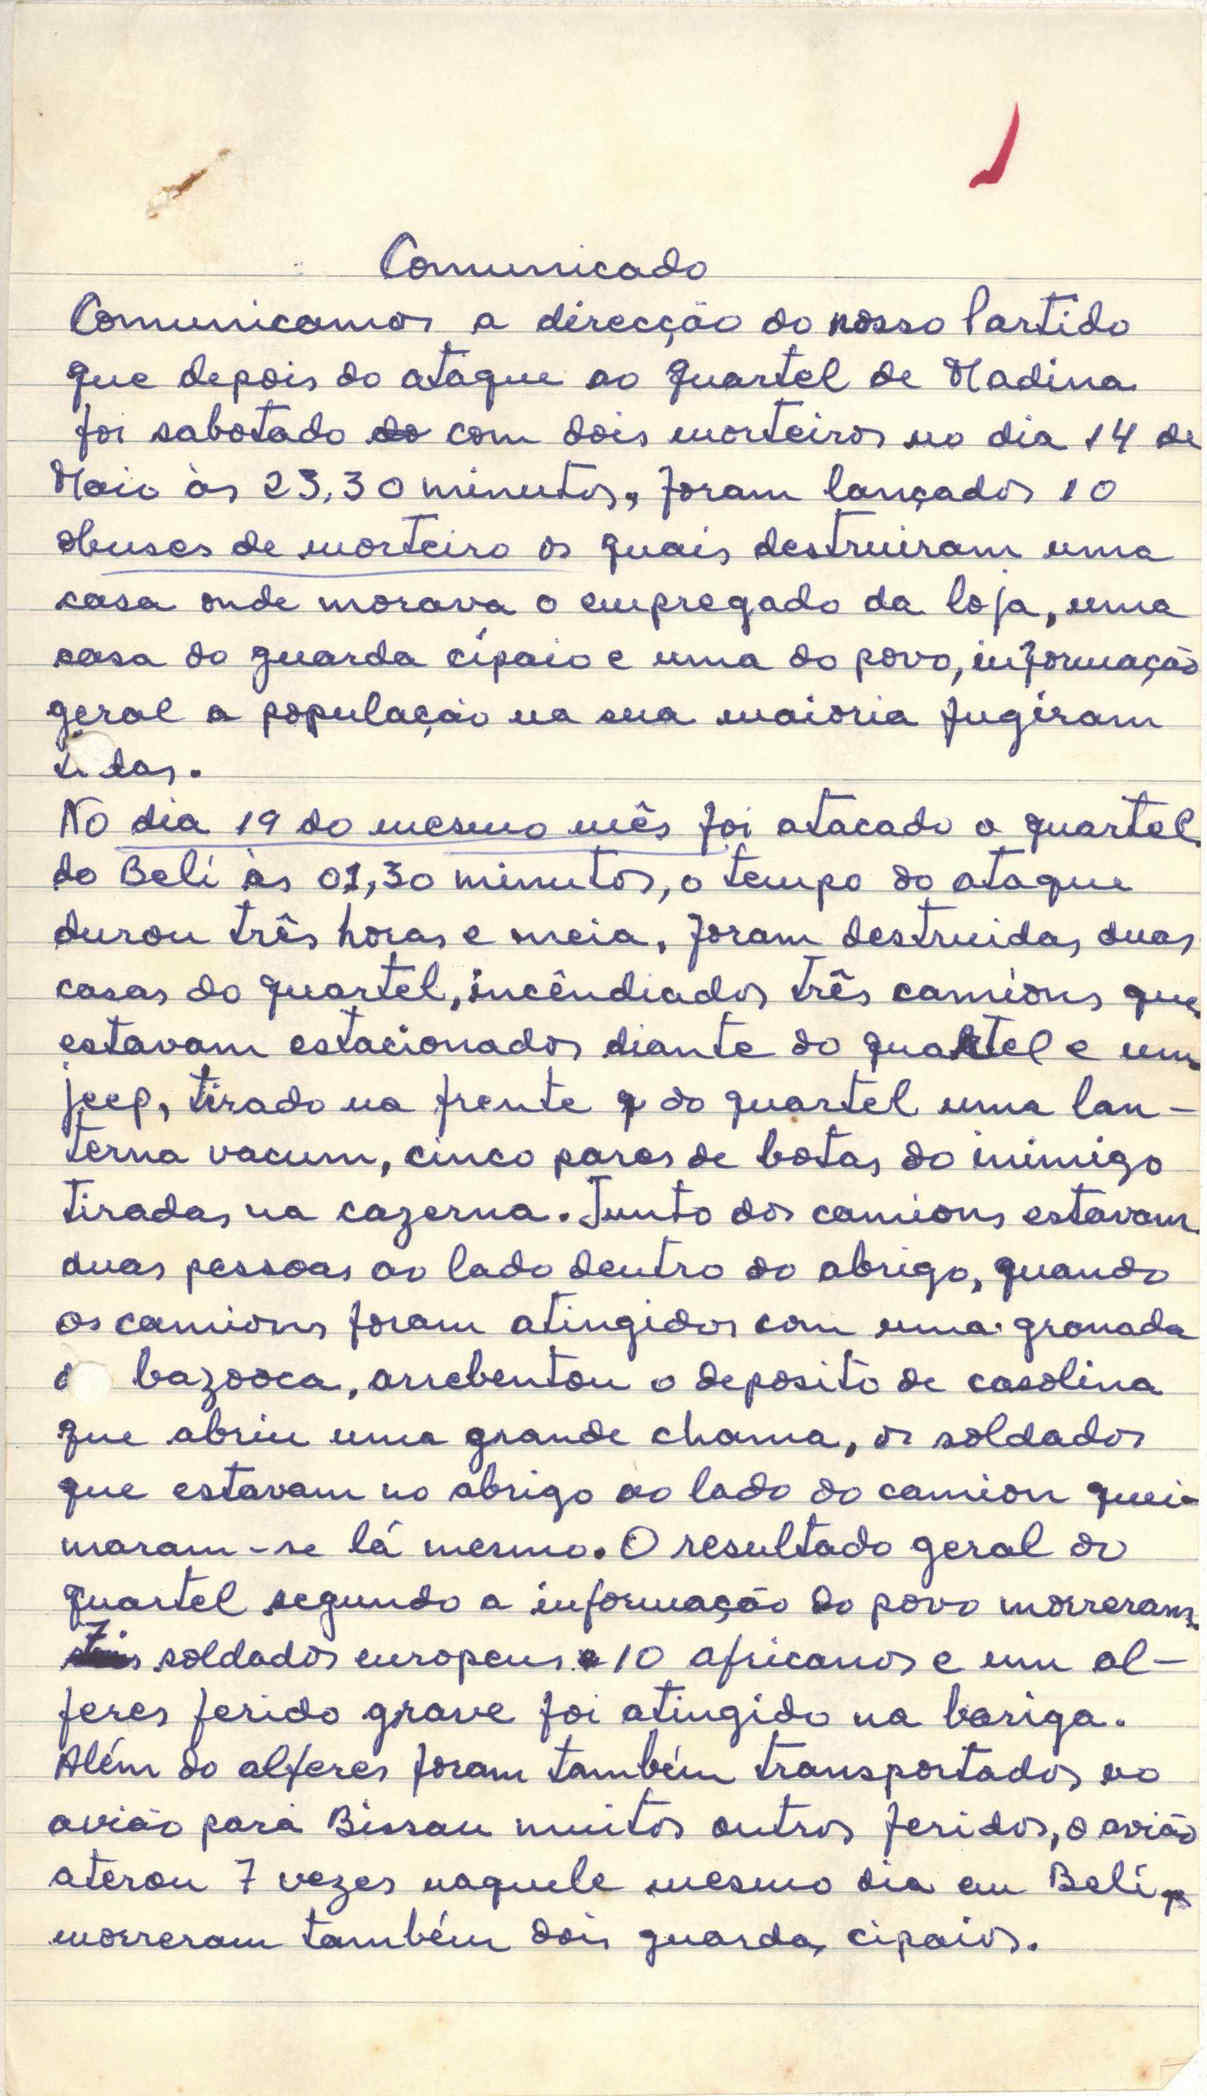 Comunicado
Comunicamos a direcção do nosso Partido
que depois do ataque ao quartel de Madina
foi sabotado do com dois morteiros no dia 14 de
Maio às 23,30 minutos, foram lançados 10
obuses de morteiro os quais destruiram uma
casa onde morava o empregado da loja, uma
casa do guarda cípaio e uma do povo, informação
geral a população na sua maioria fugiram
todas.
No dia 19 do mesmo mês foi atacado o quartel
do Beli às 01,30 minutos, o tempo do ataque
durou três horas e meia, foram destruidas duas
casas do quartel, incêndiados três camións que
estavam estacionados diante do quartel e um
jeep, tirado na frente q do quartel uma lan-
terna vacum, cinco pares de botas do inimigo
tiradas na cazerna. Junto dos camions estavam
duas pessoas ao lado dentro do abrigo, quando
os camions foram atingidos com uma granada
d bazooca, arrebentou o deposito de casolina
que abriu uma grande chama, os soldados
que estavam no abrigo ao lado do camion quei-
maram-se lá mesmo. O resultado geral do
quartel segundo a informação do povo morreram
7 soldados europeus e 10 africanos e um al-
feres ferido grave foi atingido na bariga.
Além do alferes foram também transportados no
avião para Bissau muitos outros feridos, o avião
aterou 7 vezes naquele mesmo dia em Beli,
morreram também dois guardas cipaios.